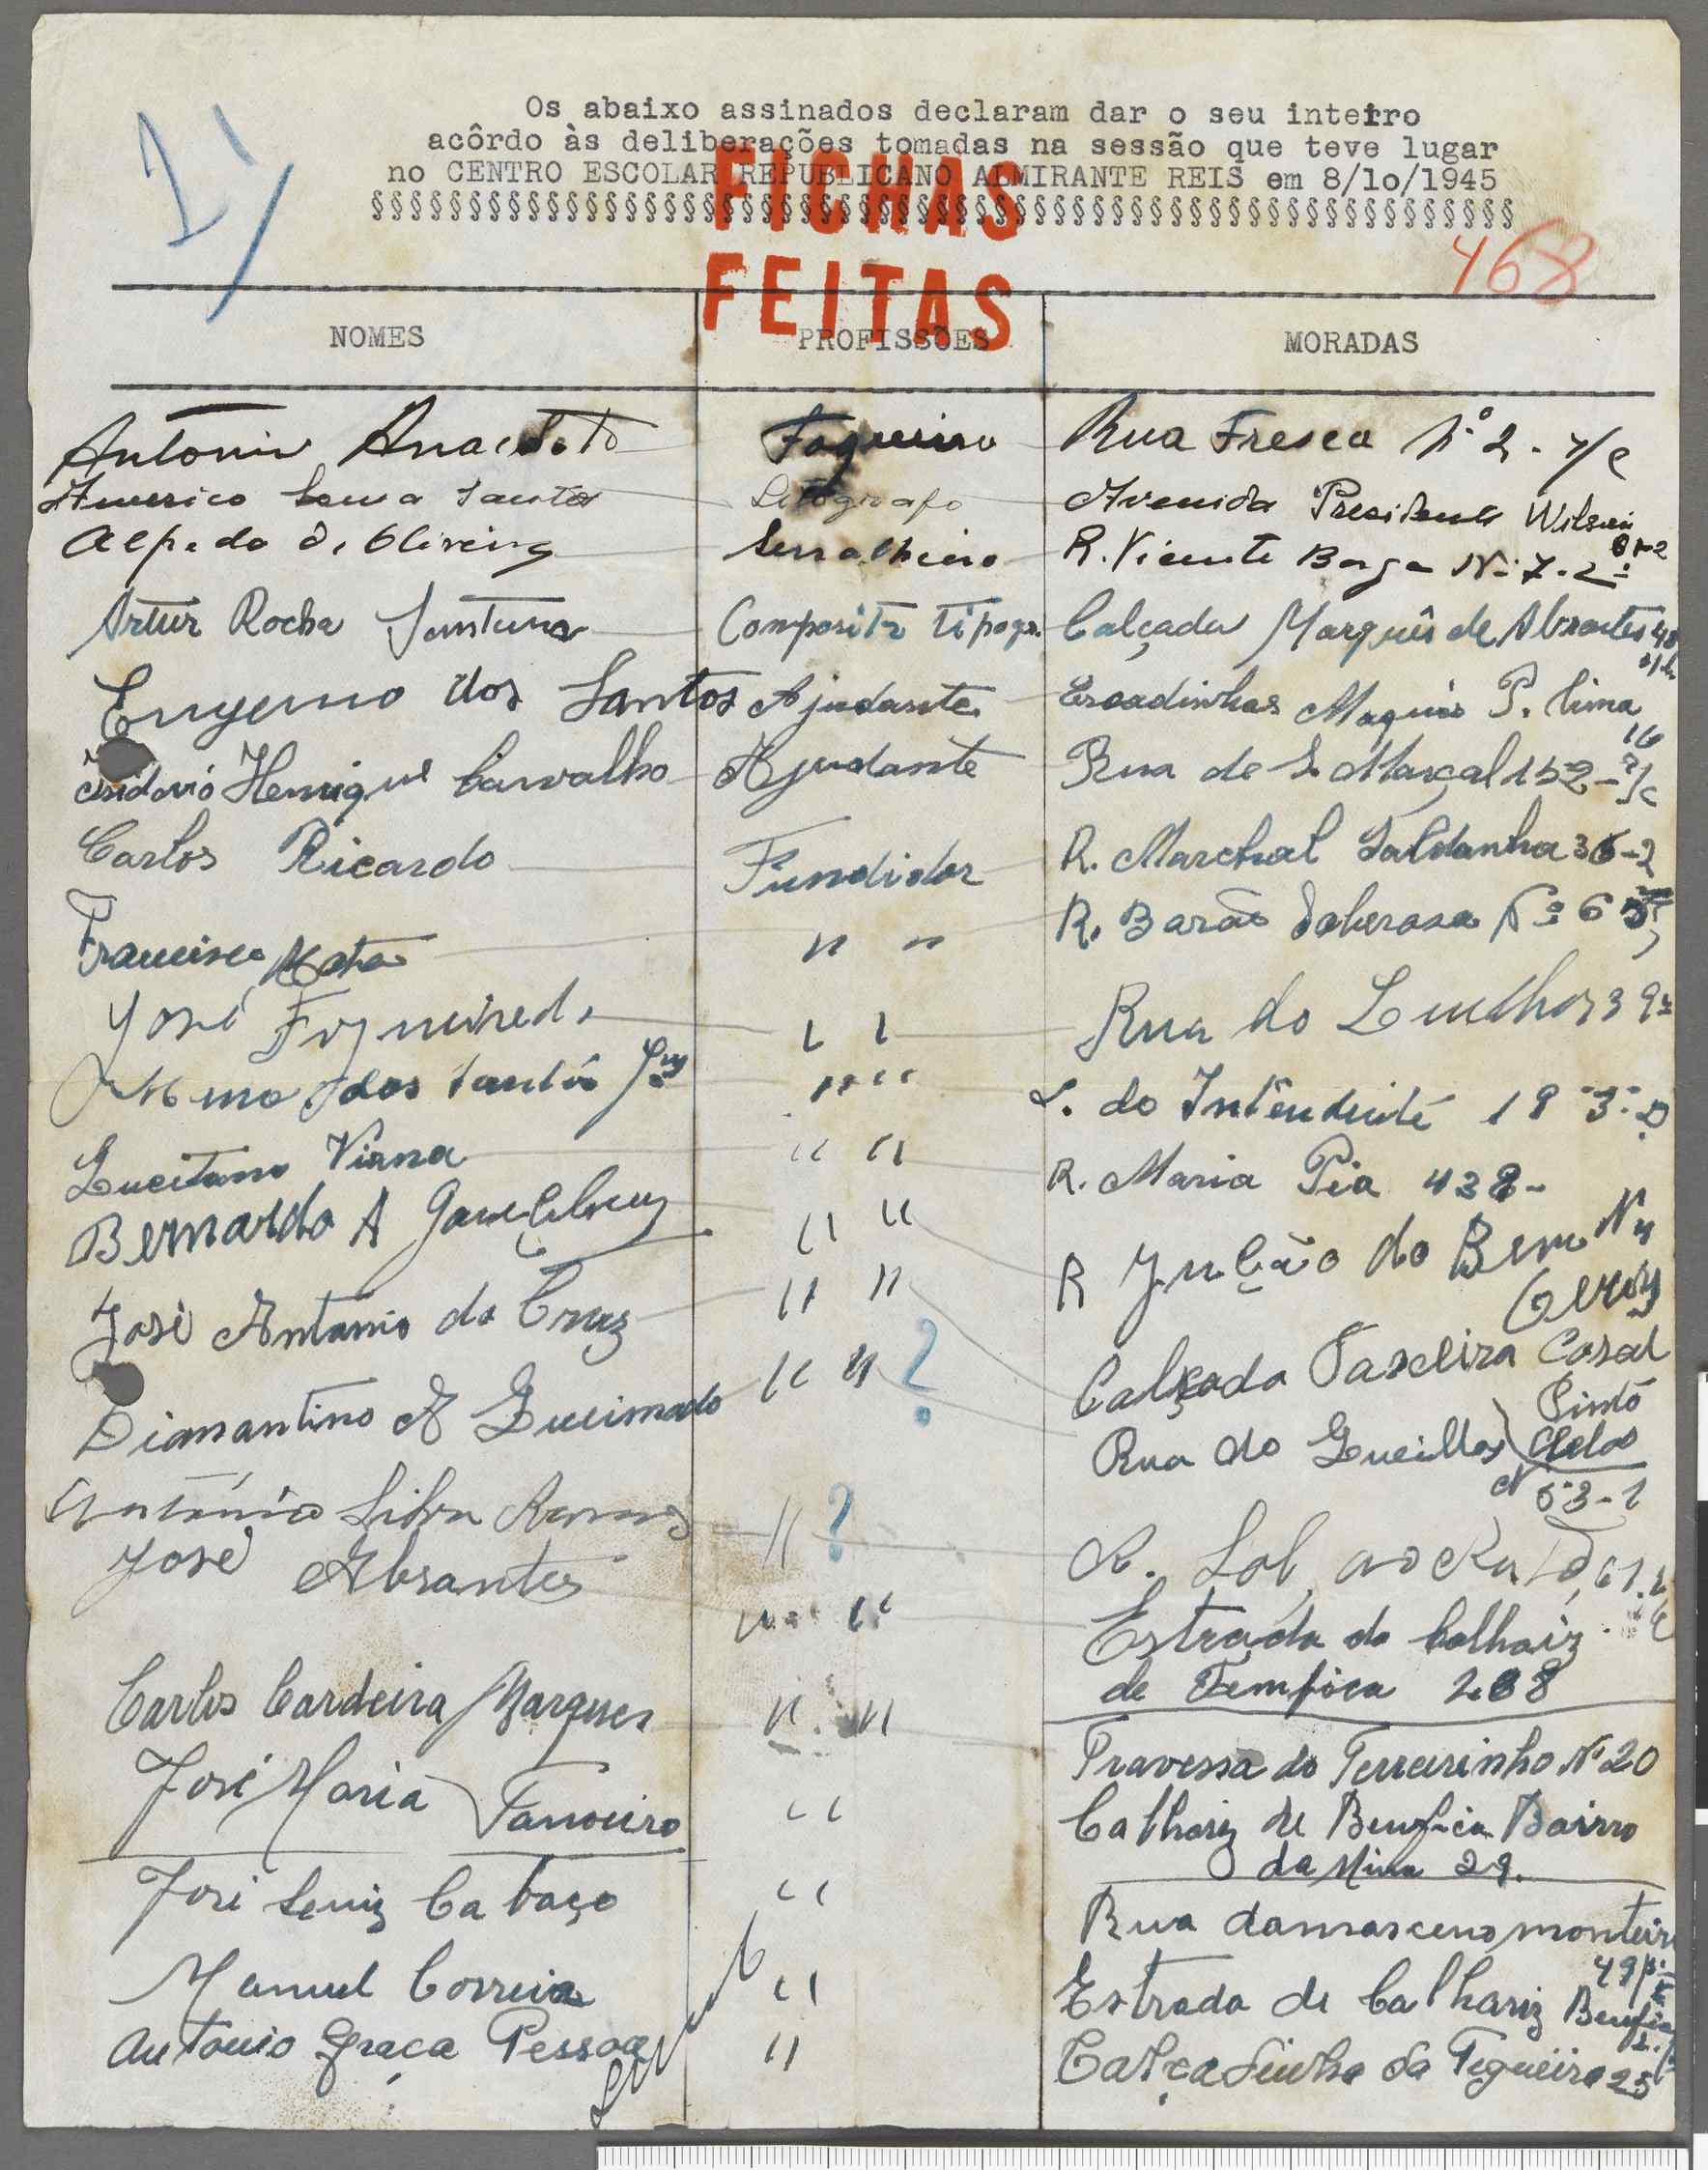 1)
Os abaixo assinados declaram dar o seu inteiro
acôrdo às deliberações tomadas na sessão que teve lugar
no CENTRO ESCOLAR REPUBLICANO ALMIRANTE REIS em 8/10/1945
§§§§§§§§§§§§§§§§§§§§§§§§§§§§§§§§§§§§§§§§§§§§§§§§§§§§§§§§§§§
FICHAS
FEITAS
468
NOMES PROFISSÕES MORADAS
António Anacleto Fogueiro Rua Fresca Nº 2 - r/c
Americo Santos Litografo Avenida Presidente Wilson
Alfredo d'Oliveira Serralheiro R. Vicente Borga Nº 7-2º
Artur Rocha Santana Compositor tipogr. Calçada Marquês de Abrantes 48
Eugenio dos Santos Ajudante Escadinhas Marquês P. Lima
16
Isidoro Henrique Carvalho Ajudante Rua de S. Marçal 152 - r/c
Carlos Ricardo Fundidor R. Marechal Saldanha 36-2
Francisco Mota " " R. Barão Saberosa Nº 6
José Figueiredo " " Rua do
dos Santos Jor " " L. do Intendente 19 3º D
Lucitano Viana " " R. Maria Pia 438-
Bernardo A Gonçalves " " R Julião do
José Antonio da Cruz " " Calçada Casal
Pinto
Diamantino A Queimado " " ? Rua do
Nº 53-1
António Silva Ramos " ? R.
José Abrantes " " Estrada do Calhariz
de Bemfica 208
Carlos Cardeira Marques " " Travessa do Terreirinho Nº 20
José Maria Tanoeiro " Calhariz de Benfica Bairro
da Mina 29.
José Luiz Cabaço " Rua damasceno monteiro
49
Manuel Correia " Estrada de Calhariz Benfica
Antonio Graça Pessoa " Calçadinha da Figueira 25